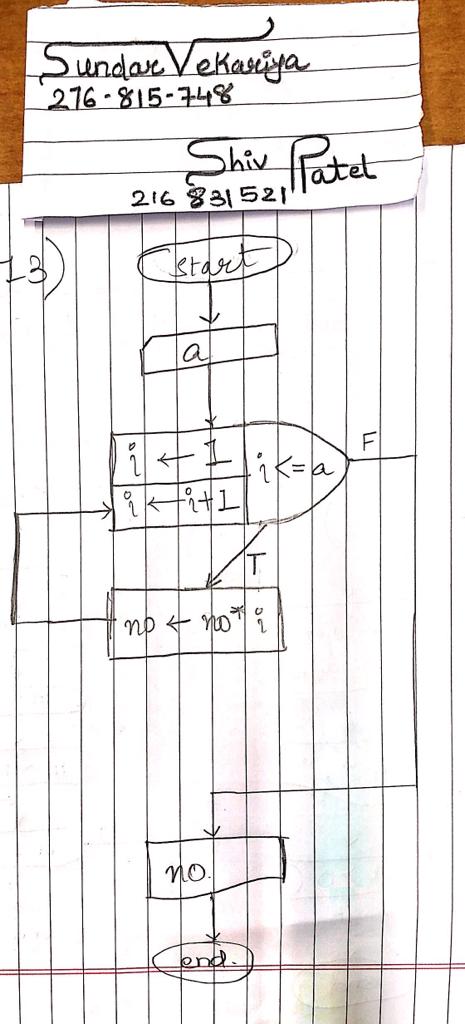 Sundar Vekariya
276-815-748
Shiv Patel
216 831521
13)
start
a
i ← 1
i ← i+1
i <= a
F
T
no ← no * i
no.
end.